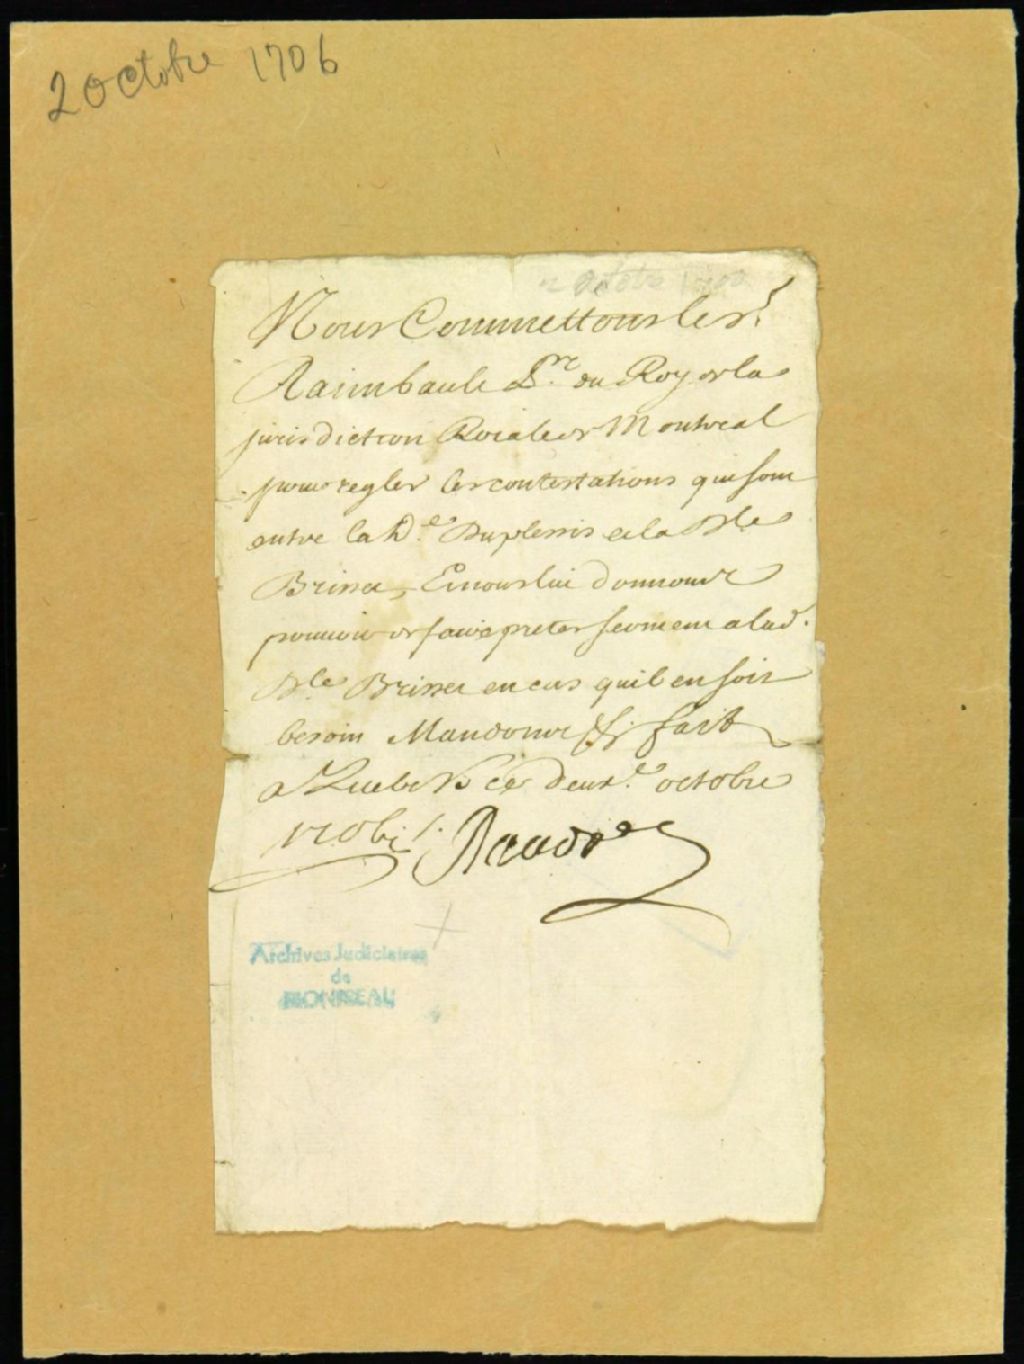 2 Octobre 1706
2 Octobre 1706
Nous Commettons le Sr.
Raimbault Pr. du Roy de la
jurisdiction Roiale de Montreal
pour regler les contestations qui sont
entre la De. Duplessis et la Dle
Brisset, Et nous lui donnons
pouvoir de faire preter serment a lad.
Dle Brisset en cas quil en soit
besoin Mandons &c. fait
a Quebec ce deuxe. octobre
1706 /.
Raudot
Archives Judiciaires
de
MONTREAL